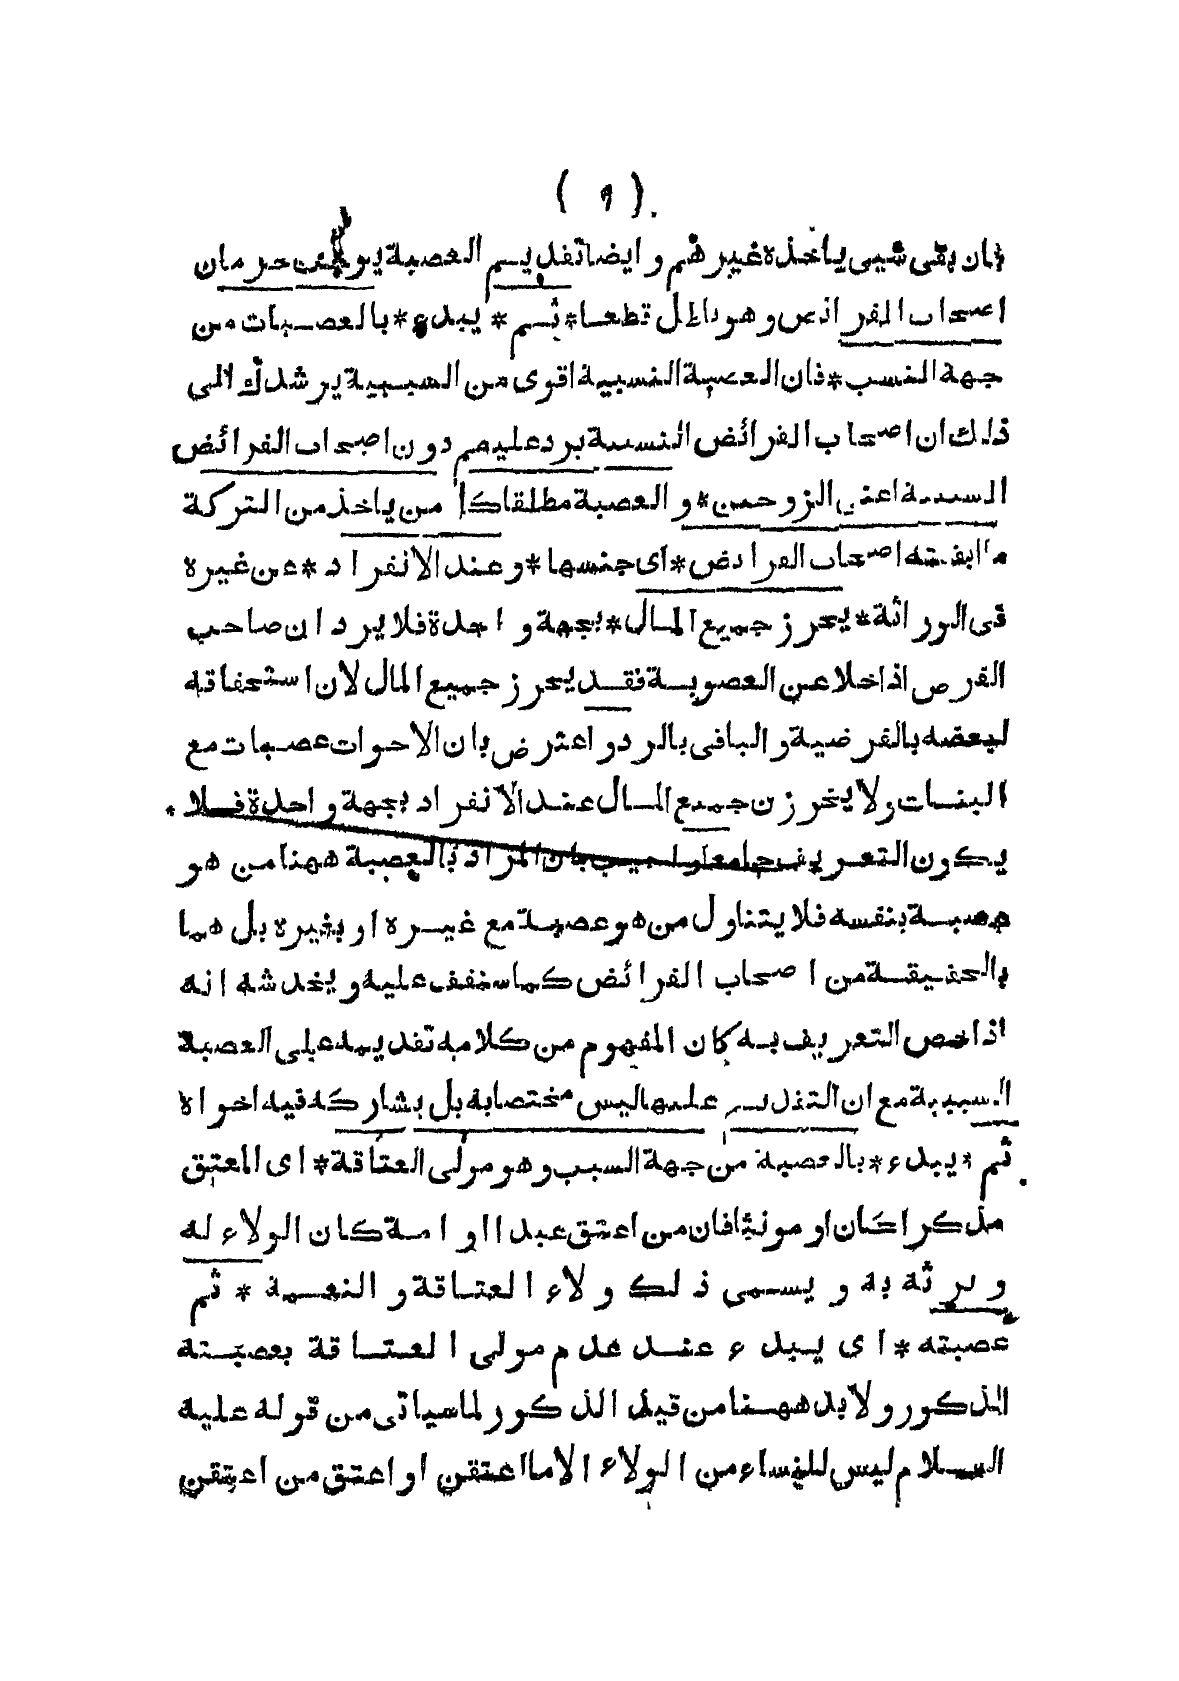 ( ٩ )
فان بقى شيى ياخذه غيرهم و ايضا تقديم العصبة يوجب حرمان
اصحاب الفرائض وهو باطل قطعا * ثم * يبدء * بالعصبات من
جهة النسب * فان العصبة النسبية اقوى من السببية يرشدك الى
ذلك ان اصحاب الفرائض النسبية يرد عليهم دون اصحاب الفرائض
السببية اعنى الزوجين * و العصبة مطلقا كل من ياخذ من التركة
ما ابقته اصحاب الفرائض * اى جنسها * وعند الانفراد * عن غيره
فى الوراثة * يحرز جميع المال * بجهة واحدة فلا يرد ان صاحب
الفرض اذا خلا عن العصوبة فقد يحرز جميع المال لان استحقاقه
لبعضه بالفرضية و الباقى بالرد و اعترض بان الاخوات عصبات مع
البنات ولا يحرزن جميع المال عند الانفراد بجهة واحدة فلا
يكون التعريف جامعا و اجيب بان المراد بالعصبة ههنا من هو
عصبة بنفسه فلا يتناول من هو عصبة مع غيره او بغيره بل هما
بالحقيقة من اصحاب الفرائض كما ستقف عليه و يخدشه انه
اذا خص التعريف به كان المفهوم من كلامه تقديمه على العصبة
السببية مع ان التقديم عليها ليس مختصا به بل يشاركه فيه اخواه
ثم * يبدء * بالعصبة من جهة السبب وهو مولى العتاقة * اى المعتق
مذكرا كان او مونثا فان من اعتق عبدا او امة كان الولاء له
و يرثه به و يسمى ذلك ولاء العتاقة و النعمة * ثم
عصبته * اى يبدء عند عدم مولى العتاقة بعصبته
الذكور ولا بد ههنا من قيد الذكور لما سياتى من قوله عليه
السلام ليس للنساء من الولاء الا ما اعتقن او اعتق من اعتقن